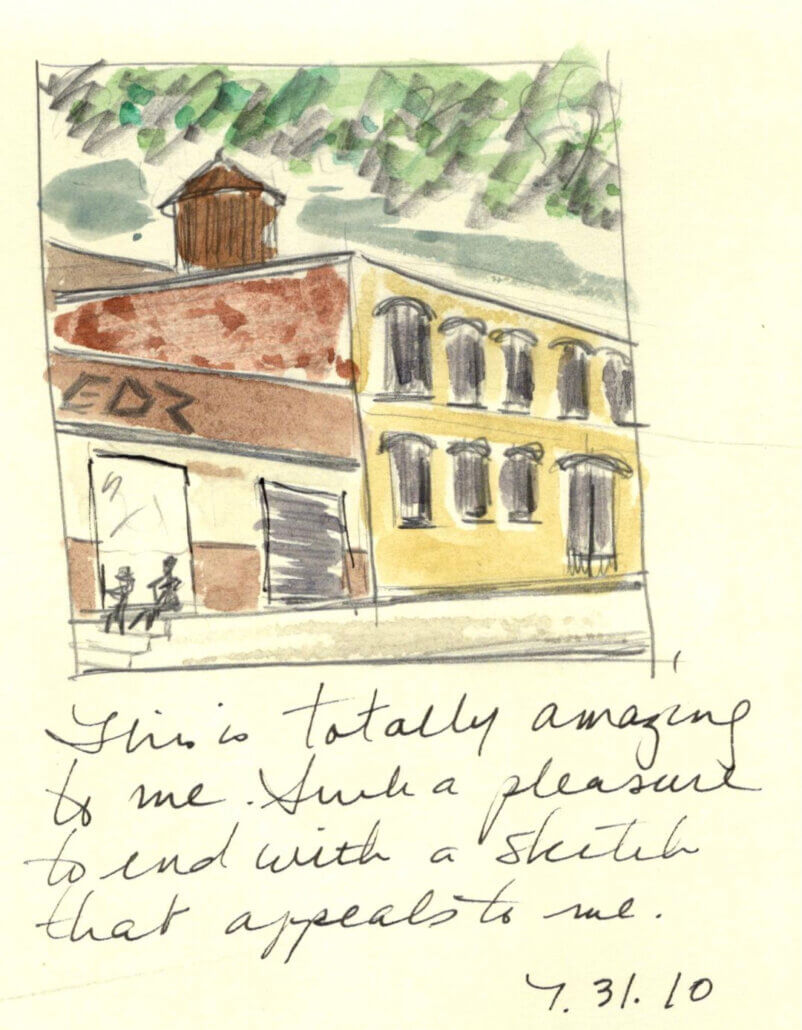 EDR
This is totally amazing
to me. Such a pleasure
to end with a sketch
that appeals to me.
7.31.10